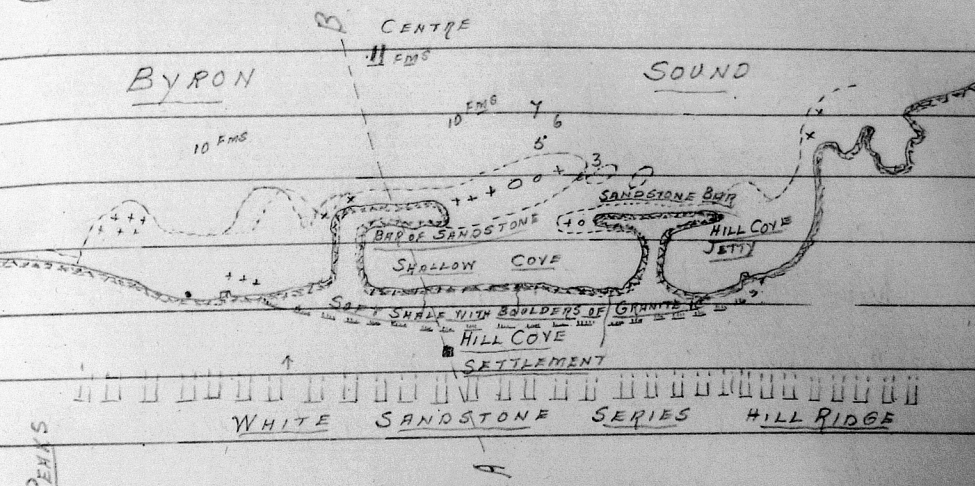 B
CENTRE
11 FMS
BYRON
SOUND
10 FMS
7
6
10 FMS
5
3
SANDSTONE BAR
BAR OF SANDSTONE
HILL COVE
JETTY
SHALLOW COVE
SOFT SHALE WITH BOULDERS OF GRANITE
HILL COVE
SETTLEMENT
WHITE SANDSTONE SERIES HILL RIDGE
PEAKS
A